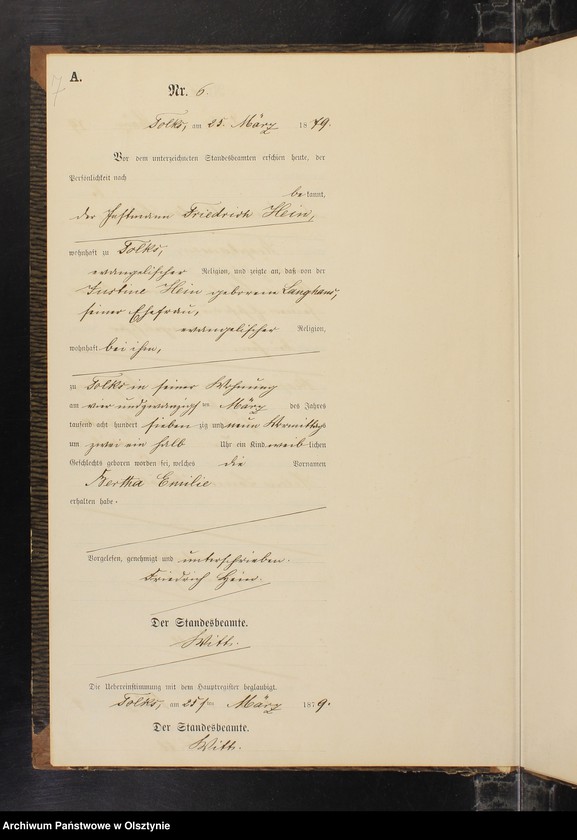 A.
7
Nr. 6.
Tolks, am 25. März 1879.
Vor dem unterzeichneten Standesbeamten erschien heute, der
Persönlichkeit nach
bekannt,
der Instmann Friedrich Hein,
wohnhaft zu Tolks,
evangelischer Religion, und zeigte an, daß von der
Justine Hein geborene Langhans,
seiner Ehefrau,
evangelischer Religion,
wohnhaft bei ihm,
zu Tolks in seiner Wohnung
am vier und zwanzigsten März des Jahres
tausend acht hundert siebenzig und neun Vormittags
um zwei ein halb Uhr ein Kind weiblichen
Geschlechts geboren worden sei, welches die Vornamen
Bertha Emilie
erhalten habe.
Vorgelesen, genehmigt und unterschrieben.
Friedrich Hein.
Der Standesbeamte.
Witt.
Die Uebereinstimmung mit dem Hauptregister beglaubigt.
Tolks, am 25ten März 1879.
Der Standesbeamte.
Witt.
Archiwum Państwowe w Olsztynie